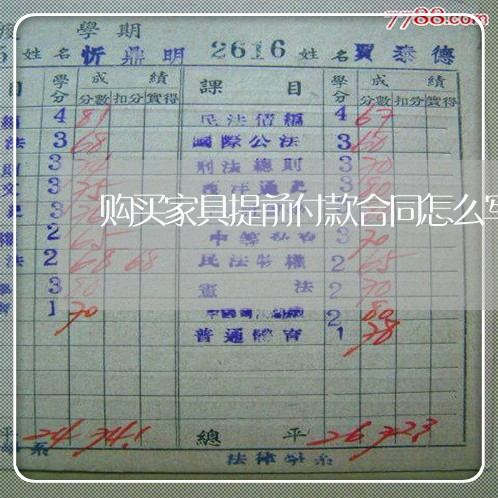 7788.com
學期
姓名 忻鼎明 2616 姓名 賈泰德
目 學分 成績 課目 學分 成績
分數 扣分 實得 分數 扣分 實得
4 81 民法債編 4 67
法 3 68 國際公法 3 60
3 刑法總則 3 70
文 3 75 西洋通史 3 80
购买家具提前付款合同怎么写
2 65 3 70
法 2 68 68 民法物權 2 65
3 80 憲法 2 70
1 70 2 80
普通體育 1 78
平 24 74.1 總平 26 72.3
系 法律學系